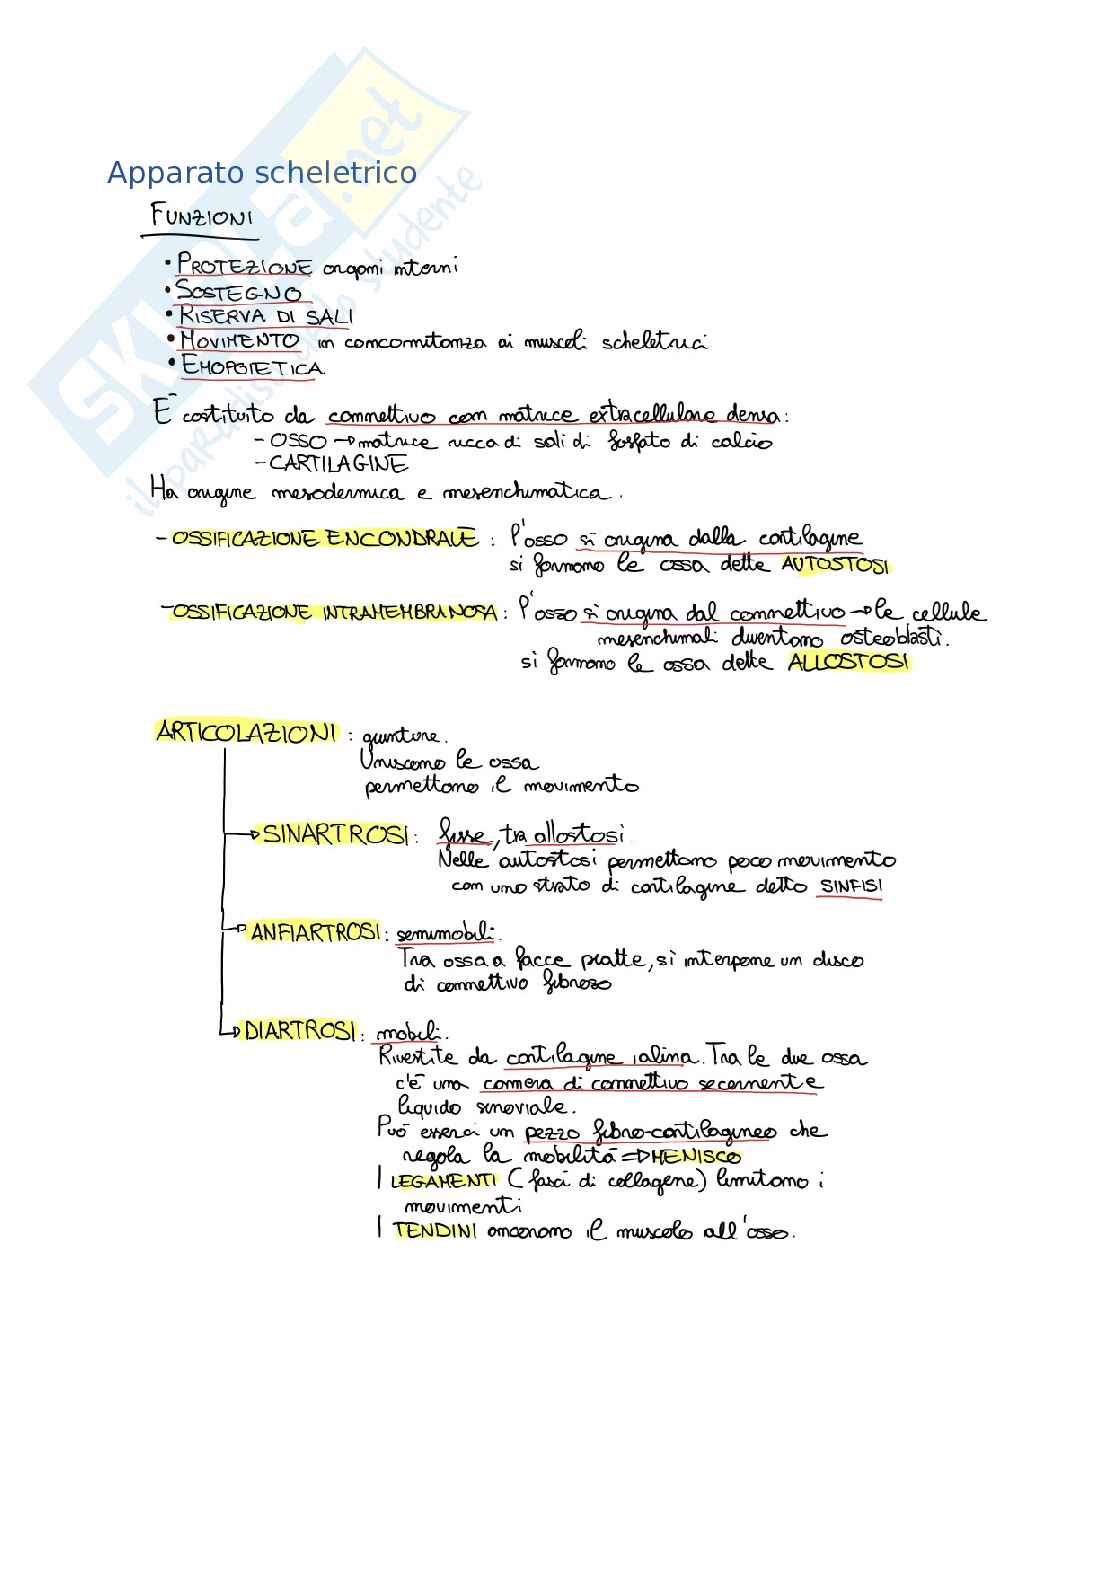 SKUOLA.net
il paradiso dello studente
Apparato scheletrico
FUNZIONI
• PROTEZIONE organi interni
• SOSTEGNO
• RISERVA DI SALI
• MOVIMENTO in concomitanza ai muscoli scheletrici
• EMOPOIETICA
E' costituito da connettivo con matrice extracellulare densa:
- OSSO → matrice ricca di sali di fosfato di calcio
- CARTILAGINE
Ha origine mesodermica e mesenchimatica.
- OSSIFICAZIONE ENCONDRALE : l'osso si origina dalla cartilagine
si formano le ossa dette AUTOSTOSI
- OSSIFICAZIONE INTRAMEMBRANOSA : l'osso si origina dal connettivo → le cellule
mesenchimali diventano osteoblasti.
si formano le ossa dette ALLOSTOSI
ARTICOLAZIONI : giunture.
Uniscono le ossa
permettono il movimento
→ SINARTROSI : fisse, tra allostosi.
Nelle autostosi permettono poco movimento
con uno strato di cartilagine detto SINFISI
→ ANFIARTROSI : semimobili.
Tra ossa a facce piatte, si interpone un disco
di connettivo fibroso
→ DIARTROSI : mobili.
Rivestite da cartilagine ialina. Tra le due ossa
c'è una camera di connettivo secernente
liquido sinoviale.
Può esserci un pezzo fibro-cartilagineo che
regola la mobilità ⇒ MENISCO
I LEGAMENTI (fasci di collagene) limitano i
movimenti
I TENDINI ancorano il muscolo all'osso.